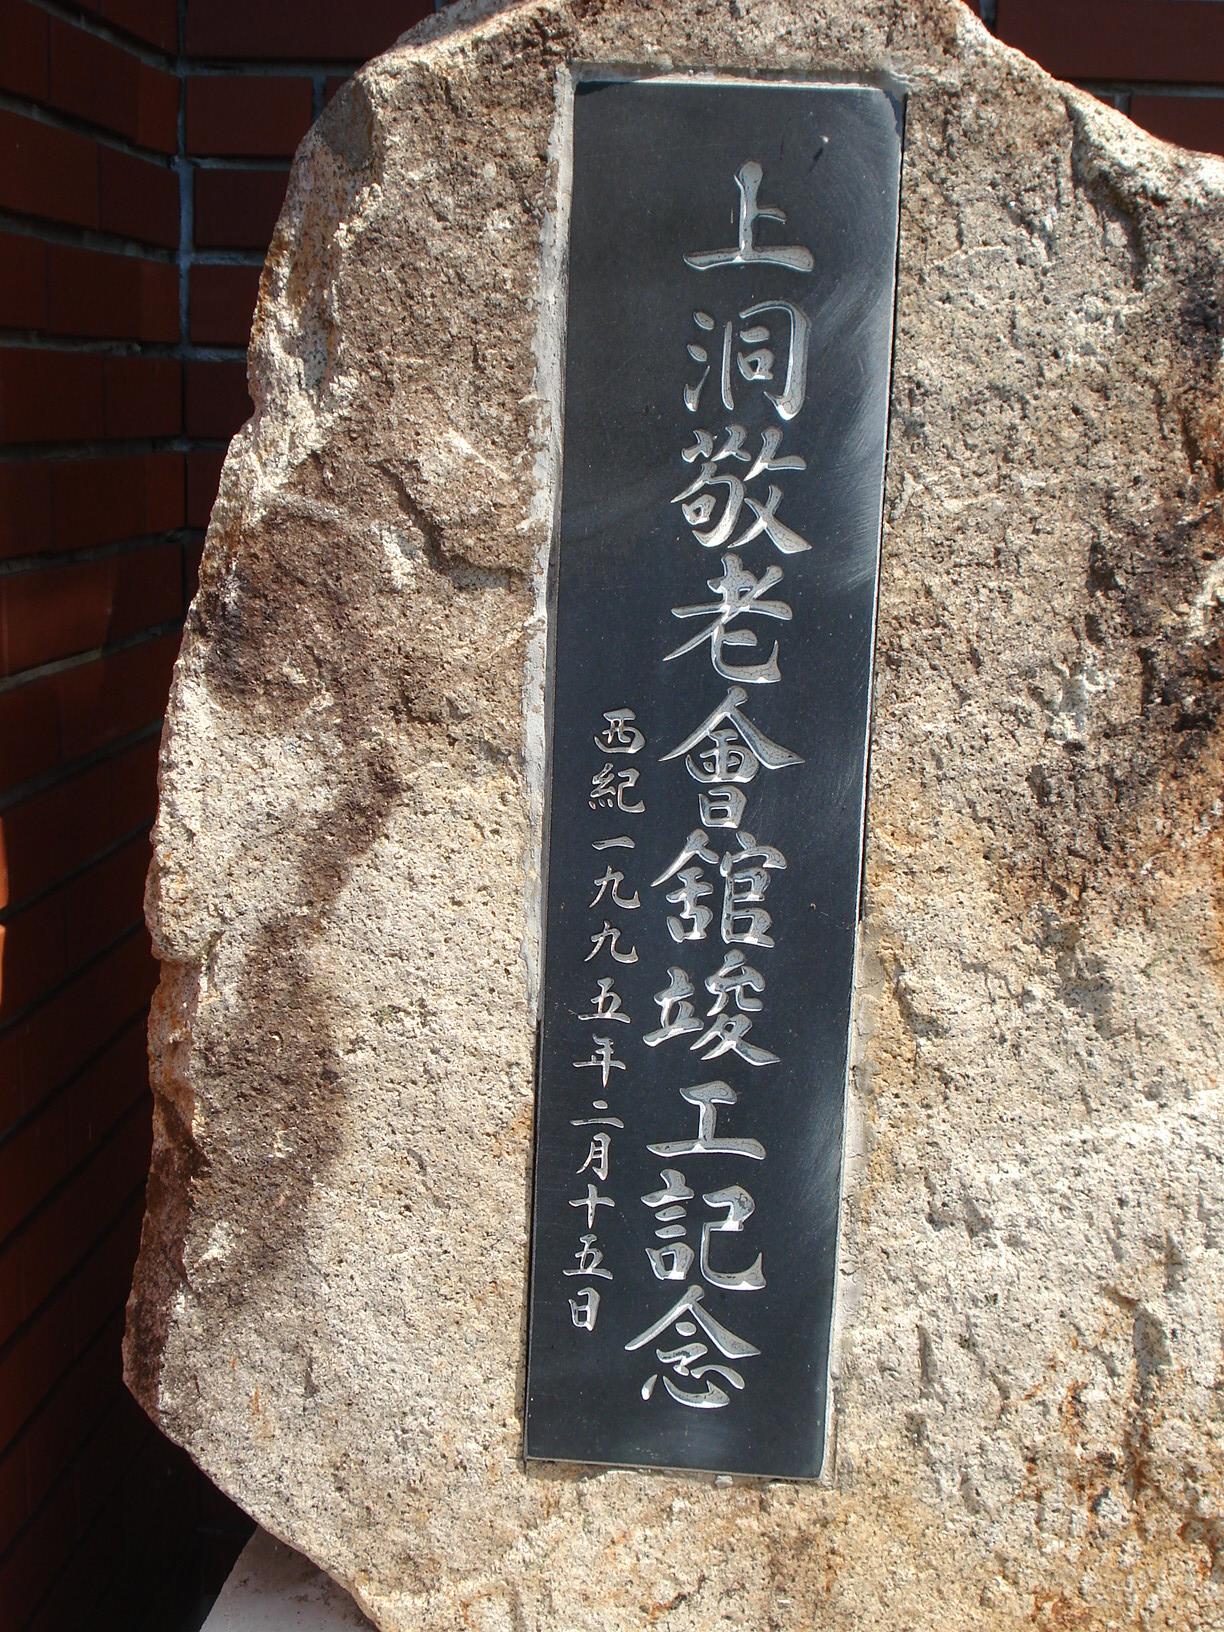 上洞敬老會舘竣工記念
西紀一九九五年二月十五日